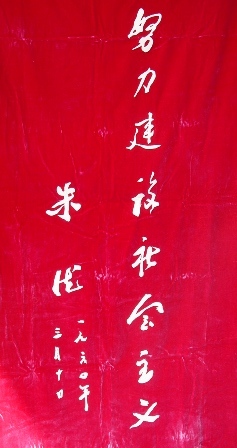 努力建设社会主义
朱德
一九六〇年
三月十日